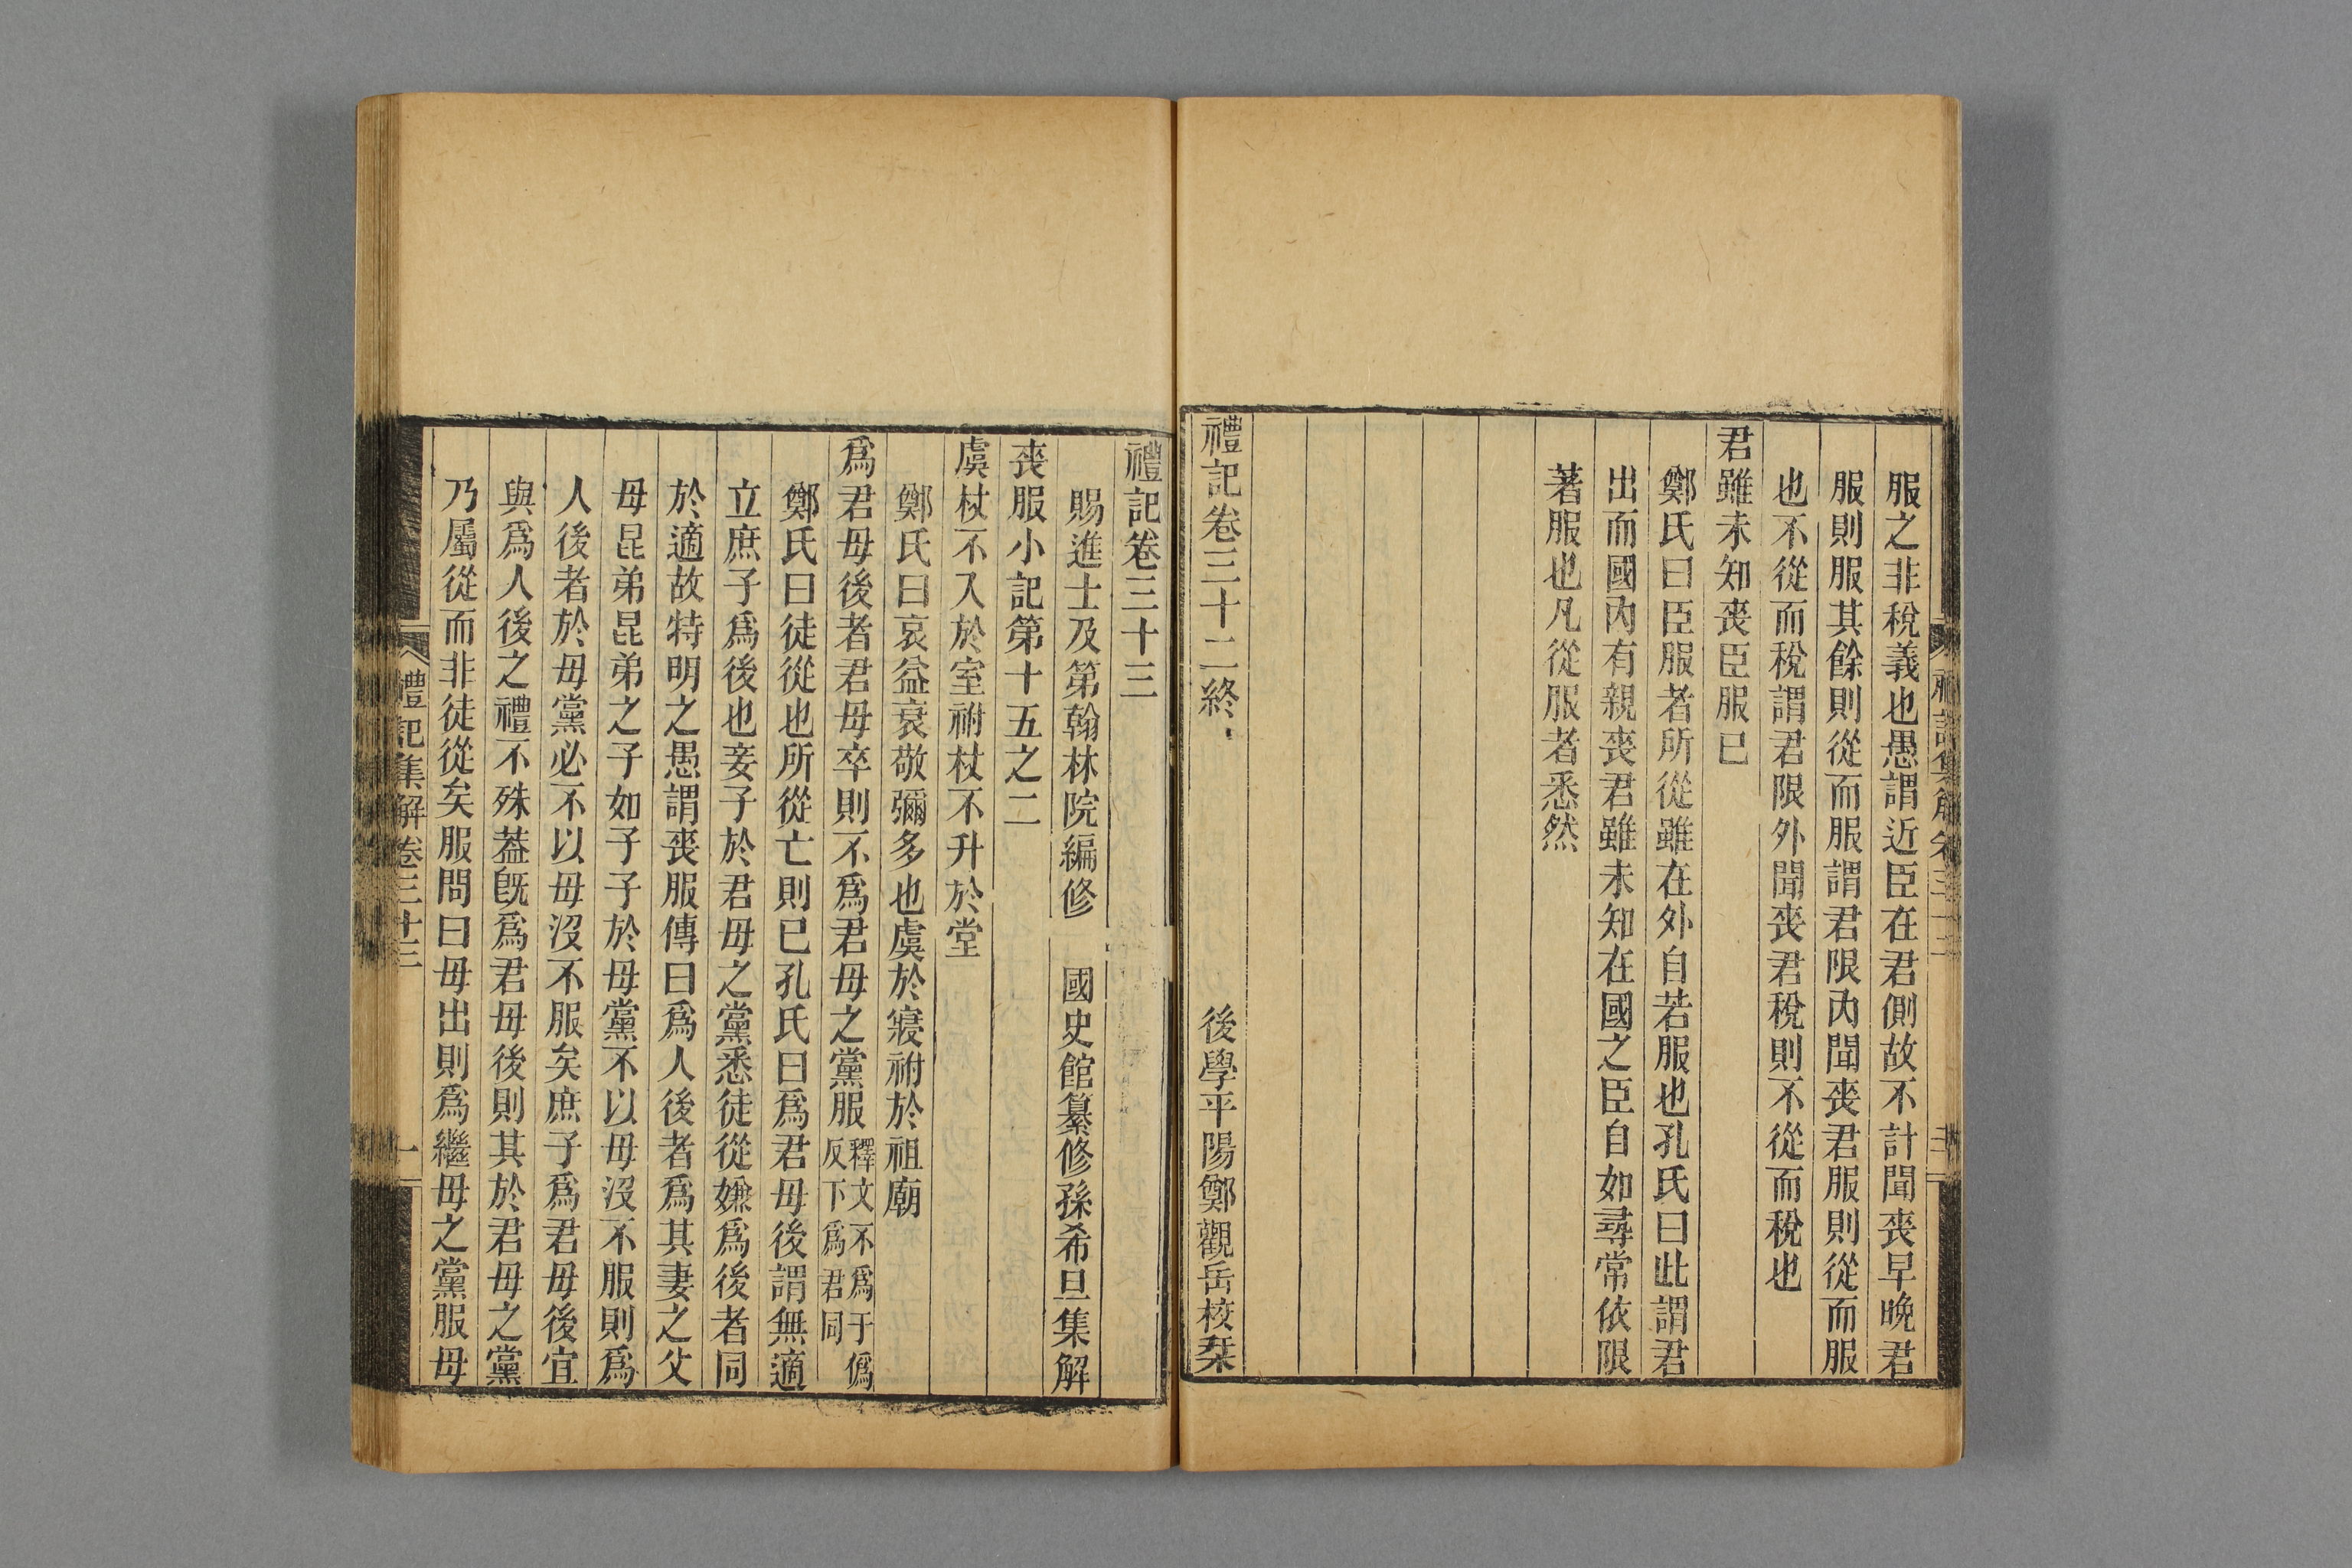 服之非稅義也愚謂近臣在君側故不計聞喪早晚君
服則服其餘則從而服謂君限內聞喪君服則從而服
也不從而稅謂君限外聞喪君稅則不從而稅也
君雖未知喪臣服已
鄭氏曰臣服者所從雖在外自若服也孔氏曰此謂君
出而國內有親喪君雖未知在國之臣自如尋常依限
著服也凡從服者悉然
禮記卷三十二終 後學平陽鄭觀岳校栞
禮記卷三十三
賜進士及第翰林院編修 國史館纂修孫希旦集解
喪服小記第十五之二
虞杖不入於室祔杖不升於堂
鄭氏曰哀益衰敬彌多也虞於寢祔於祖廟
爲君母後者君母卒則不爲君母之黨服釋文不爲于僞反下爲君同
鄭氏曰徒從也所從亡則已孔氏曰爲君母後謂無適
立庶子爲後也妾子於君母之黨悉徒從嫌爲後者同
於適故特明之愚謂喪服傳曰爲人後者爲其妻之父
母昆弟昆弟之子如子子於母黨不以母沒不服則爲
人後者於母黨必不以母沒不服矣庶子爲君母後宜
與爲人後之禮不殊葢旣爲君母後則其於君母之黨
乃屬從而非徒從矣服問曰母出則爲繼母之黨服母
禮記集解卷三十三 一